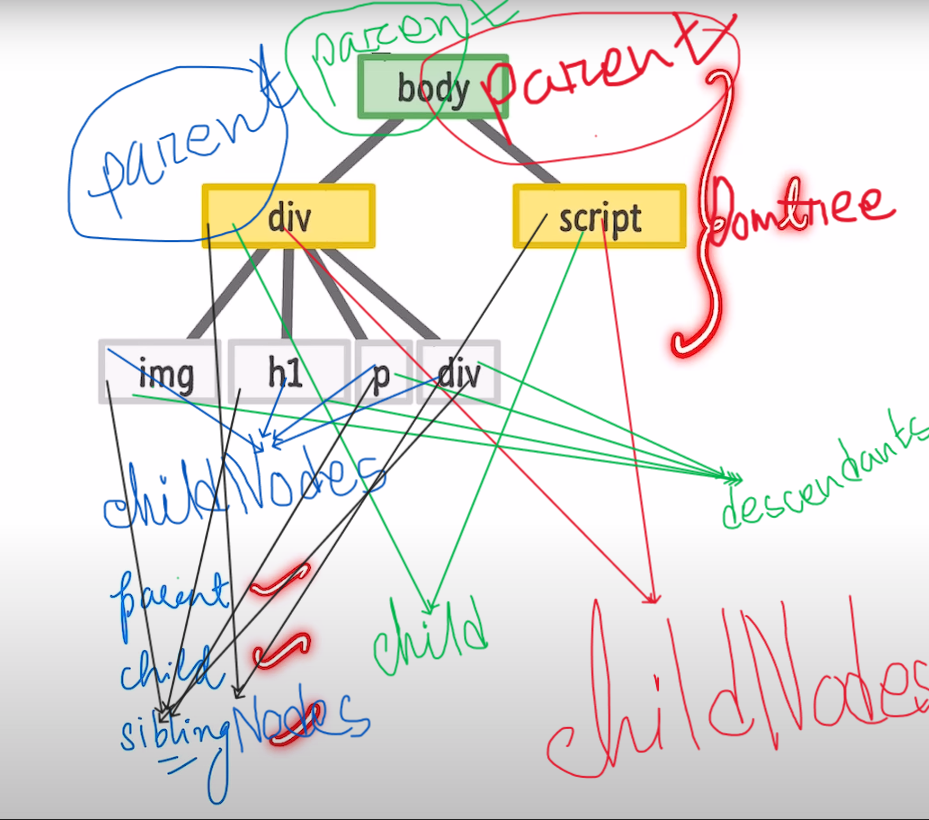 parent
parent
parent
body
div
script
Domtree
img
h1
p
div
childNodes
descendants
parent
child
child
siblingNodes
childNodes